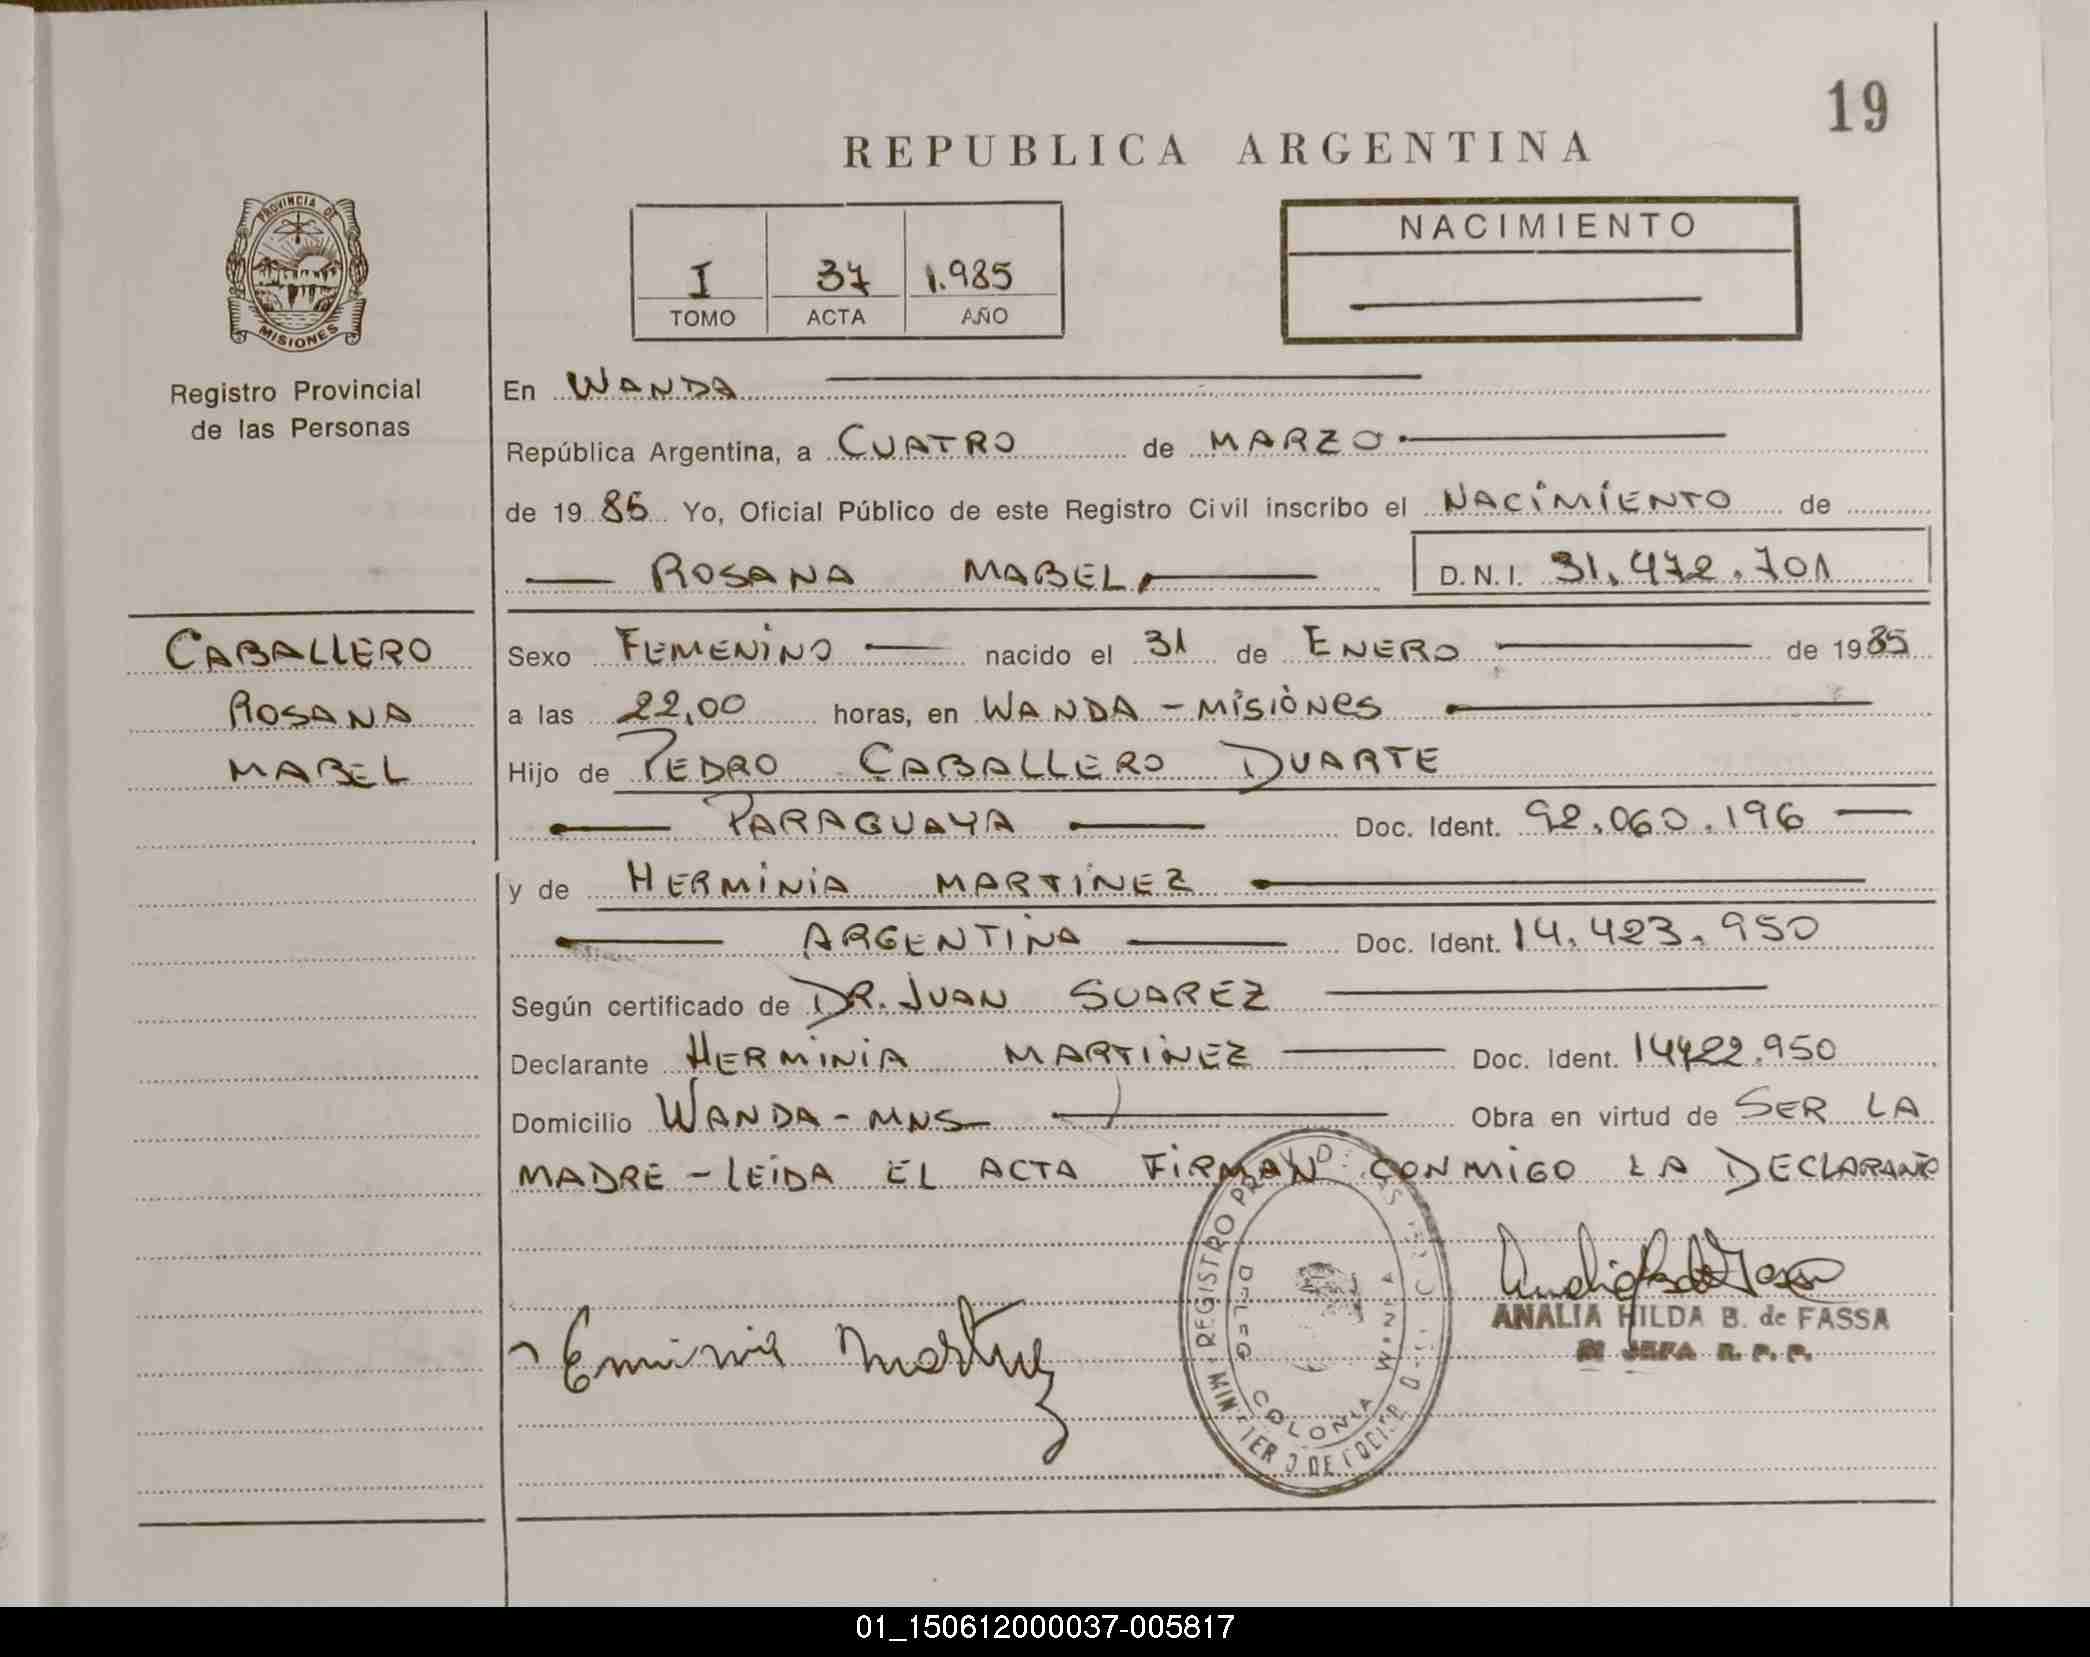 19
REPUBLICA ARGENTINA
PROVINCIA DE
MISIONES
Registro Provincial
de las Personas
I 37 1.985
TOMO ACTA AÑO
NACIMIENTO
En WANDA
República Argentina, a CUATRO de MARZO
de 19 85 Yo, Oficial Público de este Registro Civil inscribo el NACIMIENTO de
ROSANA MABEL, D.N.I. 31.472.701
CABALLERO
ROSANA
MABEL
Sexo FEMENINO nacido el 31 de ENERO de 1985
a las 22,00 horas, en WANDA - MISIONES
Hijo de PEDRO CABALLERO DUARTE
PARAGUAYA Doc. Ident. 92.060.196
y de HERMINIA MARTINEZ
ARGENTINA Doc. Ident. 14.423.950
Según certificado de DR. JUAN SUAREZ
Declarante HERMINIA MARTINEZ Doc. Ident. 14422.950
Domicilio WANDA - MNS Obra en virtud de SER LA
MADRE - LEIDA EL ACTA FIRMAN CONMIGO LA DECLARANTE
Erminia Martinez
REGISTRO
DELEG
COLONIA WANDA
ANALIA HILDA B. de FASSA
JEFA R. P. P.
01_150612000037-005817